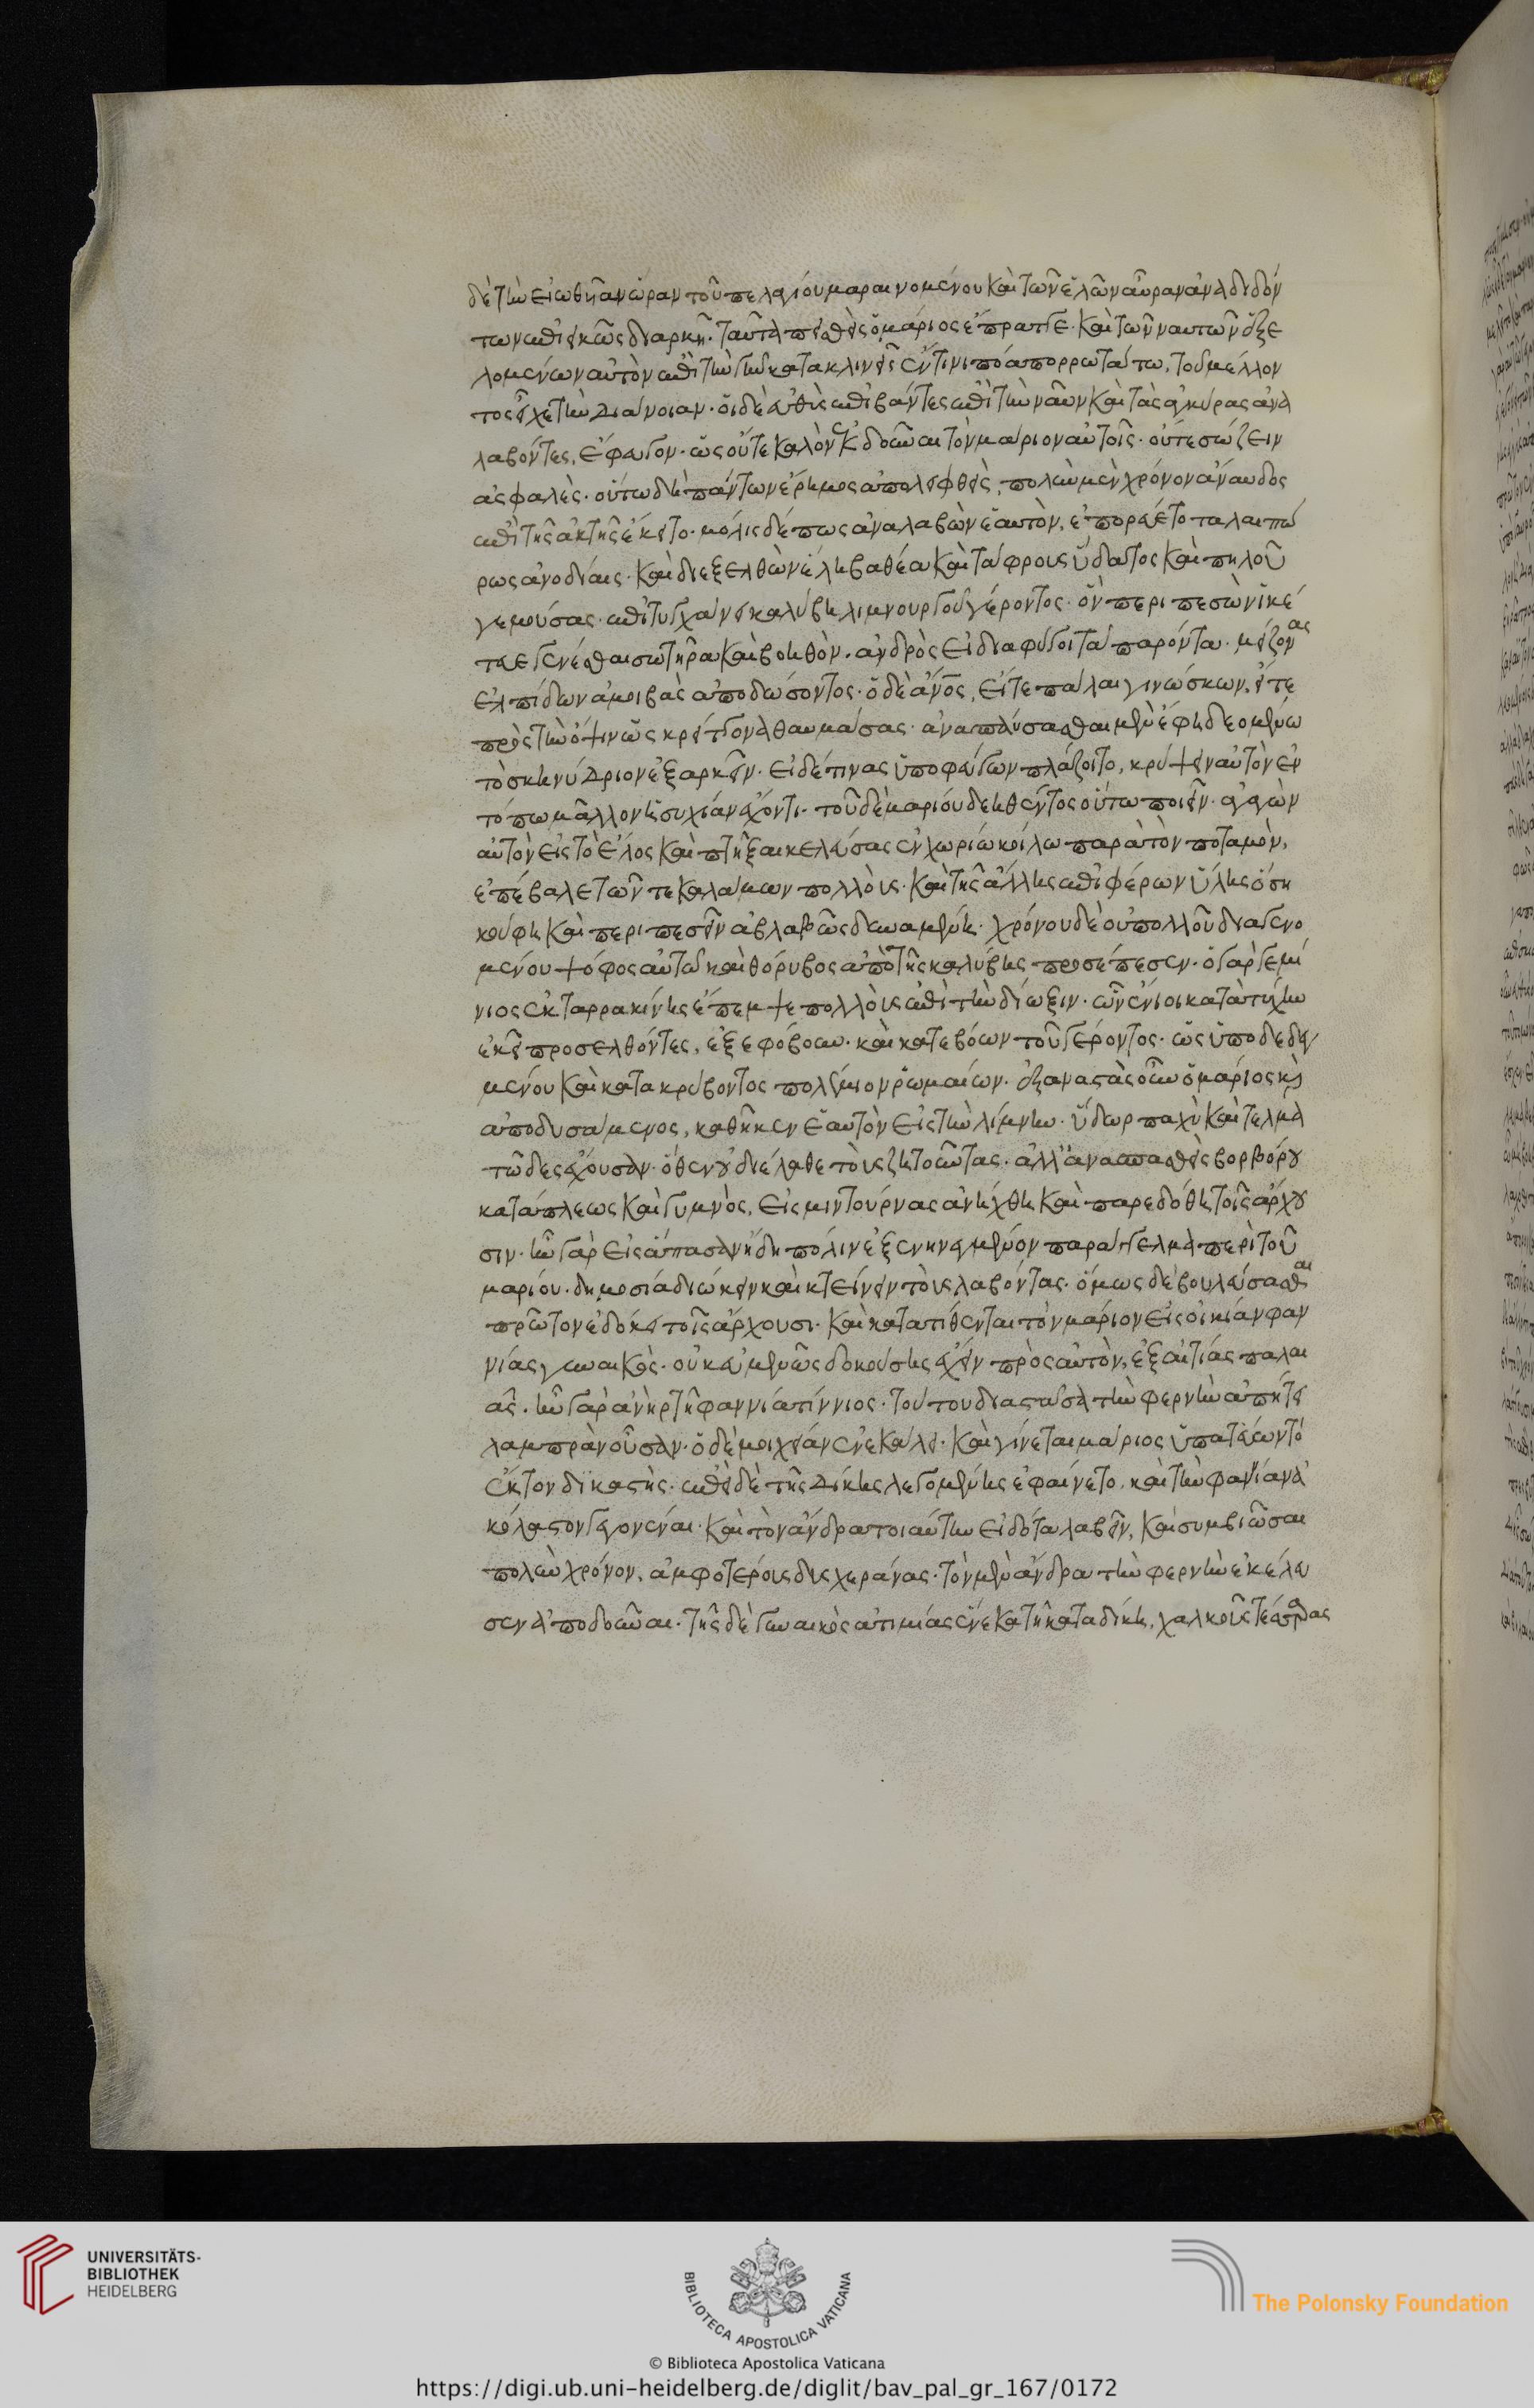 δὲ τὴν εἰωθυῖαν ὥραν τοῦ πελαγίου μαραινομένου καὶ τῶν ἑλῶν αὔραν ἀναδιδόν
των ἐπιεικῶς διαρκῆ. ταῦτα πεισθεὶς ὁ μάριος ἔπραττε. καὶ τῶν ναυτῶν ἐξε
λομένων αὐτὸν ἐπὶ τὴν γῆν κατακλινεὶς ἔν τινι πόα πορρωτάτω, τοῦ μέλλον
τος εἶχε τὴν διάνοιαν. οἱ δὲ εὐθὺς ἐπιβάντες ἐπὶ τὴν ναῦν καὶ τὰς ἀγκύρας ἀνα
λαβόντες, ἔφευγον. ὡς οὔτε καλὸν ἐκδοῦναι τὸν μάριον αὐτοῖς. οὔτε σώζειν
ἀσφαλὲς. οὕτω δὴ πάντων ἔρημος ἀπολειφθεὶς, πολὺν μὲν χρόνον ἄναυδος
ἐπὶ τῆς ἀκτῆς ἔκειτο. μόλις δέ πως ἀναλαβὼν ἑαυτὸν, ἐπορεύετο ταλαιπώ
ρως ἀνοδίαις. καὶ διεξελθὼν ἕλη βαθέα καὶ τάφρους ὕδατος καὶ πηλοῦ
γεμούσας. ἐπιτυγχάνει καλύβη λιμνουργοῦ γέροντος. ὃν περιπεσὼν ἱκέ
τευε γενέσθαι σωτῆρα καὶ βοηθὸν. ἀνδρὸς εἰ διαφύγοι τὰ παρόντα. μείζονας
ἐλπίδων ἀμοιβὰς ἀποδώσοντος. ὁ δὲ ἄνος, εἴτε πάλαι γινώσκων. εἴτε
πρὸς τὴν ὄψιν ὡς κρείττονα θαυμάσας. ἀναπαύσασθαι μὲν ἔφη δεομένω
τὸ σκηνύδριον ἐξαρκεῖν. εἰ δέ τινας ὑποφεύγων πλάζοιτο, κρύψειν αὐτὸν ἐν
τόπω μᾶλλον ἡσυχίαν ἔχοντι. τοῦ δὲ μαρίου δεηθέντος οὕτω ποιεῖν. ἀγαγὼν
αὐτὸν εἰς τὸ ἕλος καὶ πτῆξαι κελεύσας ἐν χωρίω κοίλω παρὰ τὸν ποταμὸν,
ἐπέβαλε τῶν τε καλάμων πολλοὺς. καὶ τῆς ἄλλης ἐπιφέρων ὕλης ὅση
κούφη καὶ περιπεσεῖν ἀβλαβῶς δυναμένη. χρόνου δὲ οὐ πολλοῦ διαγενο
μένου ψόφος αὐτῶ καὶ θόρυβος ἀπὸ τῆς καλύβης προσέπεσεν. ὁ γὰρ γεμί
νιος ἐκ ταρρακίνης ἔπεμψε πολλοὺς ἐπὶ τὴν δίωξιν. ὧν ἔνιοι κατὰ τύχην
ἐκεῖ προσελθόντες, ἐξεφόβουν. καὶ κατεβόων τοῦ γέροντος. ὡς ὑποδεδεγ
μένου καὶ κατακρύβοντος πολέμιον ῥωμαίων. ἐξαναστὰς οὖν ὁ μάριος κὶ
ἀποδυσάμενος, καθῆκεν ἑαυτὸν εἰς τὴν λίμνην. ὕδωρ παχὺ καὶ τελμα
τῶδες ἔχουσαν. ὅθεν οὐ διέλαθε τοὺς ζητοῦντας. ἀλλ' ἀνασπασθεὶς βορβόρου
κατάπλεως καὶ γυμνὸς, εἰς μιντούρνας ἀνήχθη καὶ παρεδόθη τοῖς ἄρχου
σιν. ἦν γὰρ εἰς ἅπασαν ἤδη πόλιν ἐξενηνεγμένον παράγγελμα περὶ τοῦ
μαρίου. δημοσία διώκειν καὶ κτείνειν τοὺς λαβόντας. ὅμως δὲ βουλεύσασθαι
πρῶτον ἐδόκει τοῖς ἄρχουσι. καὶ κατατίθενται τὸν μάριον εἰς οἰκίαν φαν
νίας γυναικὸς. οὐκ εὐμενῶς δοκούσης ἔχειν πρὸς αὐτὸν, ἐξ αἰτίας παλαι
ᾶς. ἦν γὰρ ἀνὴρ τῆ φαννία τίννιος. τούτου διαστᾶσα τὴν φερνὴν ἀπήτει
λαμπρὰν οὖσαν. ὁ δὲ μοιχείαν ἐνεκάλει. καὶ γίνεται μάριος ὑπατεύων τὸ
ἕκτον δικαστὴς. ἐπεὶ δὲ τῆς δίκης λεγομένης ἐφαίνετο, καὶ τὴν φαννίαν ἀ
κόλαστον γεγονέναι. καὶ τὸν ἄνδρα τοιαύτην εἰδότα λαβεῖν, καὶ συμβιῶσαι
πολὺν χρόνον, ἀμφοτέροις δυσχεράνας. τὸν μὲν ἄνδρα τὴν φερνὴν ἐκέλευ
σεν ἀποδοῦναι. τῆς δὲ γυναικὸς ἀτιμίας ἕνεκα τῆ καταδίκη, χαλκοῦς τέσσαρας
UNIVERSITÄTS-
BIBLIOTHEK
HEIDELBERG
BIBLIOTECA APOSTOLICA VATICANA
The Polonsky Foundation
© Biblioteca Apostolica Vaticana
https://digi.ub.uni-heidelberg.de/diglit/bav_pal_gr_167/0172